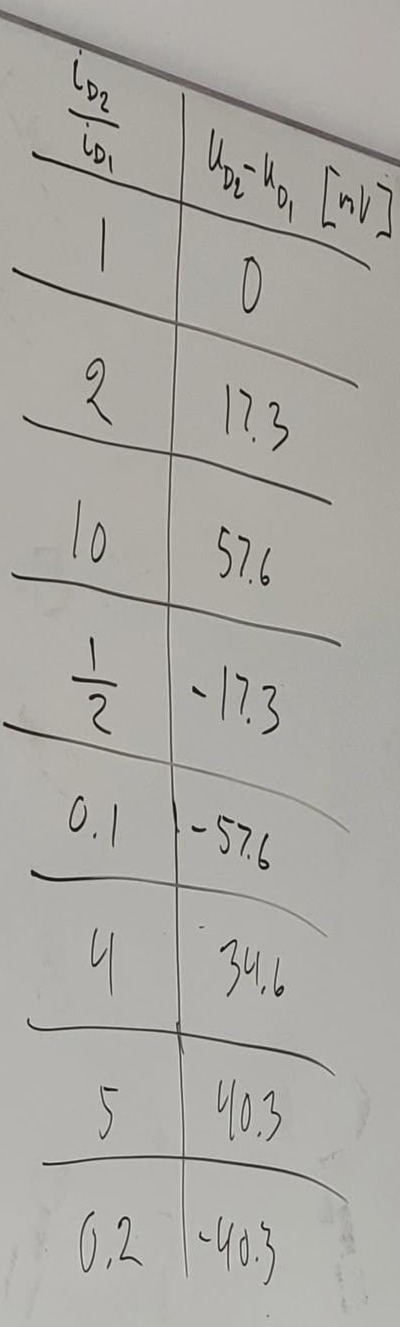 i_D2/i_D1 u_D2-u_D1 [mV]
1 0
2 17.3
10 57.6
1/2 -17.3
0.1 -57.6
4 34.6
5 40.3
0.2 -40.3